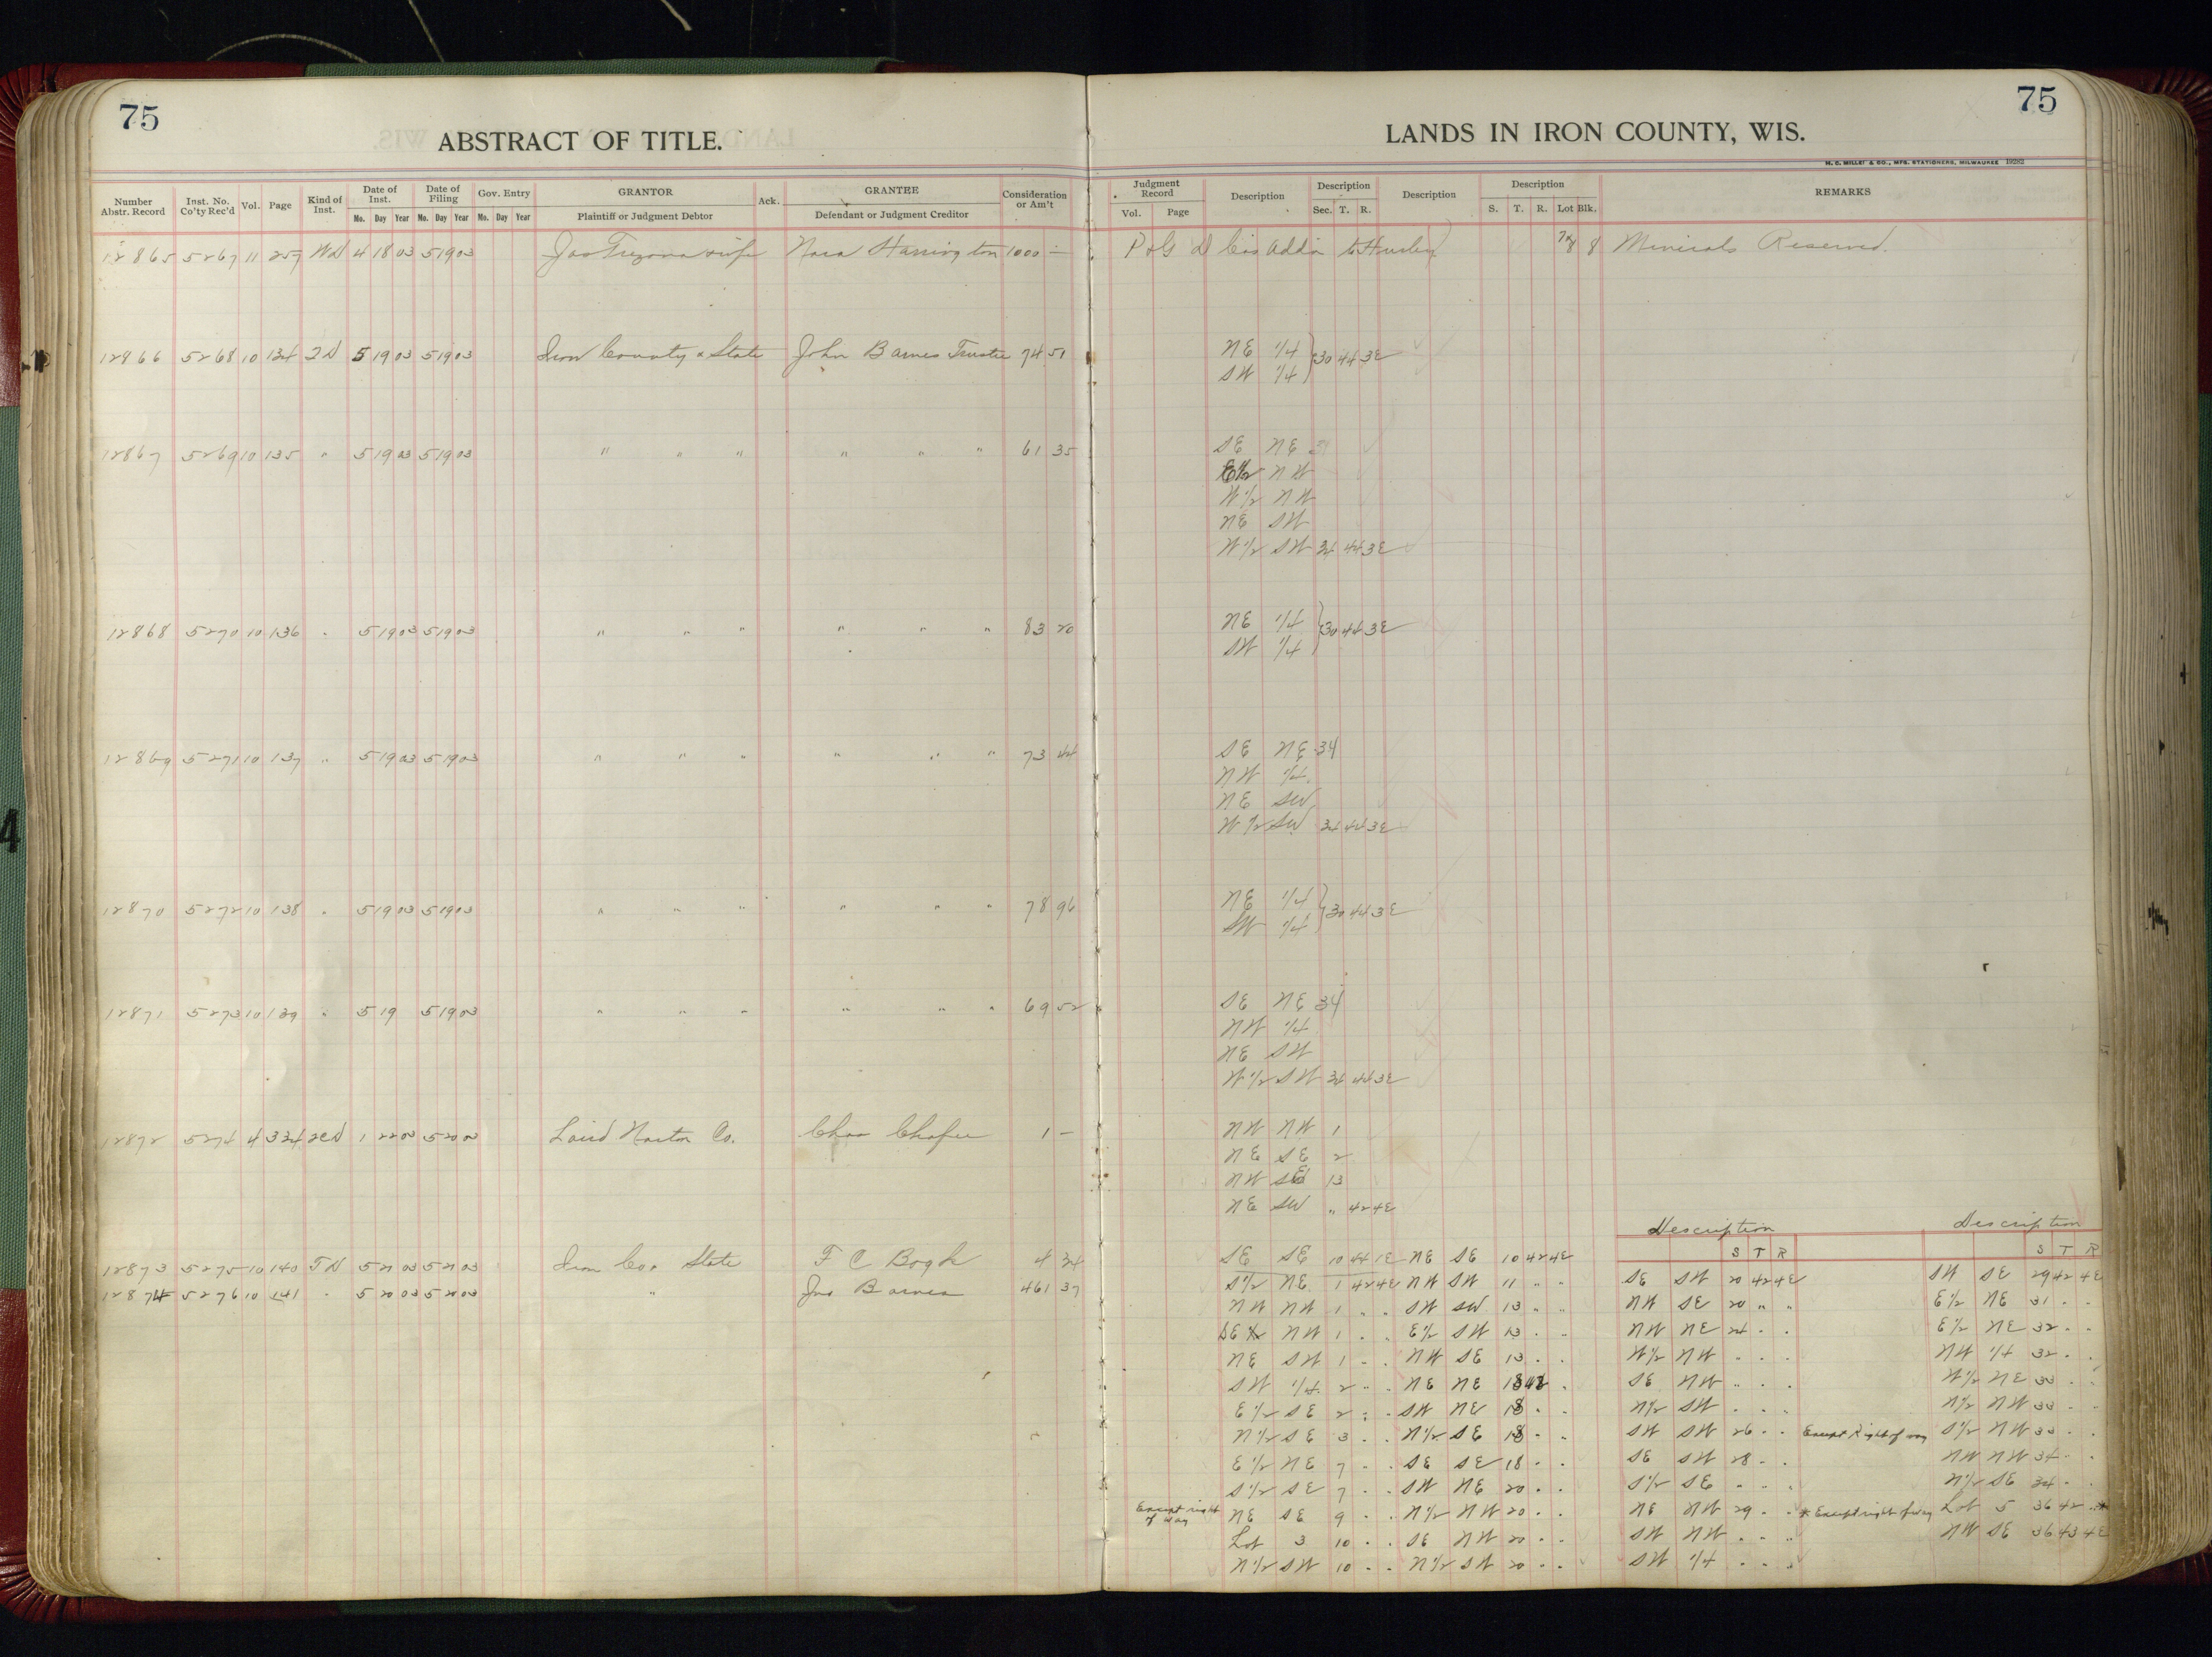 75
ABSTRACT OF TITLE.
LANDS IN IRON COUNTY, WIS.
75
H. C. MILLER & CO., MFG. STATIONERS, MILWAUKEE 19282
Number Abstr. Record | Inst. No. Co'ty Rec'd | Vol. | Page | Kind of Inst. | Date of Inst. Mo. Day Year | Date of Filing Mo. Day Year | Gov. Entry Mo. Day Year | GRANTOR Plaintiff or Judgment Debtor | Ack. | GRANTEE Defendant or Judgment Creditor | Consideration or Am't
Judgment Record Vol. Page | Description | Description Sec. T. R. | Description | Description S. T. R. Lot Blk. | REMARKS
12865 5267 11 257 WD 4 18 03 5 19 03 Jas Trezona & wife Nora Harrington 1000 — P & G D Cos Add'n to Hurley 7&8 8 Minerals Reserved.
12866 5268 10 134 TD 5 19 03 5 19 03 Iron County & State John Barnes Trustee 74 51 NE 1/4 } 30 44 3E
SW 1/4
12867 5269 10 135 " 5 19 03 5 19 03 " " " " " " 61 35 SE NE 34
E1/2 NW
W1/2 NW
NE SW
W1/2 SW 34 44 3E
12868 5270 10 136 " 5 19 03 5 19 03 " " " " " " 83 20 NE 1/4 } 30 44 3E
SW 1/4
12869 5271 10 137 " 5 19 03 5 19 03 " " " " " " 73 44 SE NE 34
NW 1/4
NE SW
W1/2 SW 34 44 3E
12870 5272 10 138 " 5 19 03 5 19 03 " " " " " " 78 96 NE 1/4 } 30 44 3E
SW 1/4
12871 5273 10 139 " 5 19 5 19 03 " " " " " " 69 52 SE NE 34
NW 1/4
NE SW
W1/2 SW 34 44 3E
12872 5274 4 334 2CD 1 22 03 5 20 03 Laird Norton Co. Chas Chafer 1 — NW NW 1
NE SE 2
NW SE 13
NE SW " 42 4E
Description Description
S T R S T R
12873 5275 10 140 TD 5 21 03 5 21 03 Iron Co & State F C Bogk 4 34 SE SE 10 44 1E NE SE 10 42 4E
12874 5276 10 141 " 5 20 03 5 20 03 " Jno Barnes 461 37 S1/2 NE 1 42 4E NW SW 11 " " SE SW 20 42 4E SW SE 29 42 4E
NW NW 1 " " SW SW 13 " " NW SE 20 " " E1/2 NE 31 " "
SE NW 1 " " E1/2 SW 13 " " NW NE 24 " " E1/2 NE 32 " "
NE SW 1 " " NW SE 13 " " W1/2 NW " " " NW 1/4 32 " "
SW 1/4 2 " " NE NE 18 42 " SE NW " " " W1/2 NE 33 " "
E1/2 SE 2 " " SW NE 18 " " N1/2 SW " " " N1/2 NW 33 " "
N1/2 SE 3 " " N1/2 SE 18 " " SW SW 26 " " Except Right of way S1/2 NW 33 " "
E1/2 NE 7 " " SE SE 18 " " SE SW 28 " " NW NW 34 " "
S1/2 SE 7 " " SW NE 20 " " S1/2 SE " " " N1/2 SE 34 " "
Except right of way NE SE 9 " " N1/2 NW 20 " " NE NW 29 " " * Except right of way Lot 5 36 42 " *
Lot 3 10 " " SE NW 20 " " SW NW " " " NW SE 36 43 4E
N1/2 SW 10 " " N1/2 SW 20 " " SW 1/4 " " "